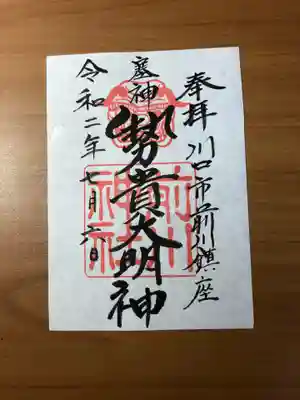 奉拝 川口市前川鎮座
塞神
勢貴大明神
前川神社
令和二年七月六日